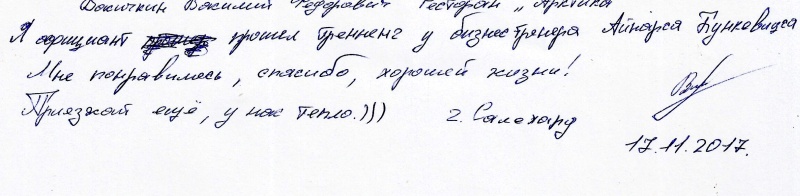 Василий Федорович Ресторан „Арктика
Я официант прошел тренинг у бизнестренера Айнарса Бунковицса
Мне понравилось, спасибо, хорошей жизни!
Приезжай ещё, у нас тепло.)))
г. Салехард
17.11.2017.